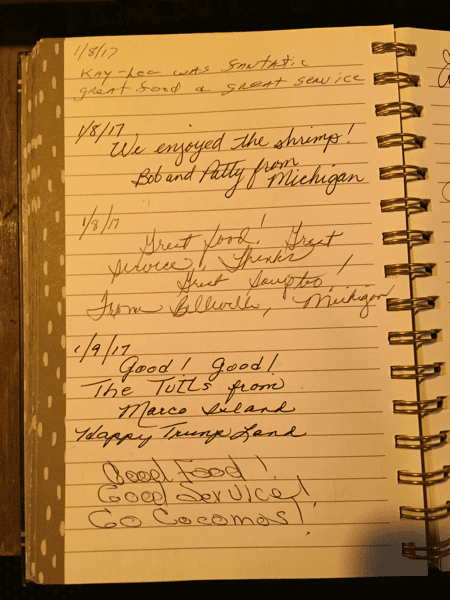 1/8/17
Kay-Lee was fantastic
great food & great service
1/8/17
We enjoyed the shrimp!
Bob and Patty from
Michigan
1/8/17
Great food! Great
service, Thanks
Great Soup too!
From Belleville, Michigan
1/9/17
Good! Good!
The Tutts from
Marco Island
Happy Trump Land
Good Food!
Good Service!
Go Cocomos!